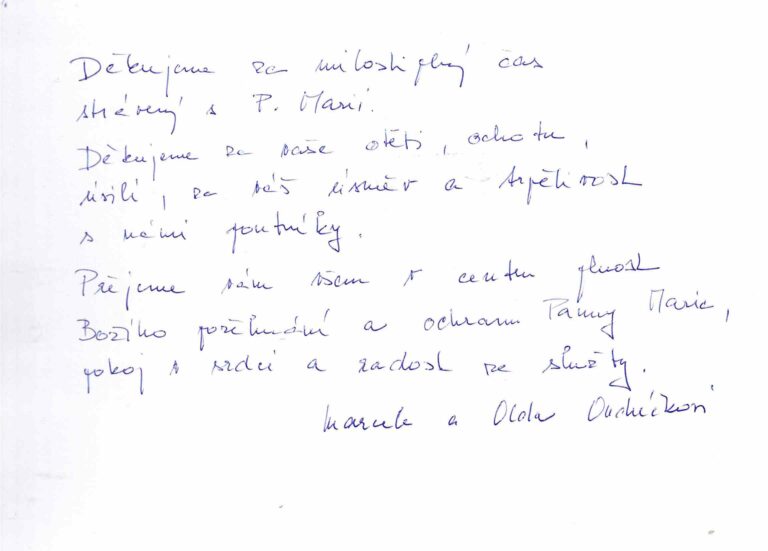 Děkujeme za milostiplný čas
strávený s P. Marií.
Děkujeme za vaše oběti, ochotu,
úsilí, za váš úsměv a trpělivost
s námi poutníky.
Přejeme vám všem v centru plnost
Božího požehnání a ochranu Panny Marie,
pokoj v srdci a radost ze služby.
a Olda